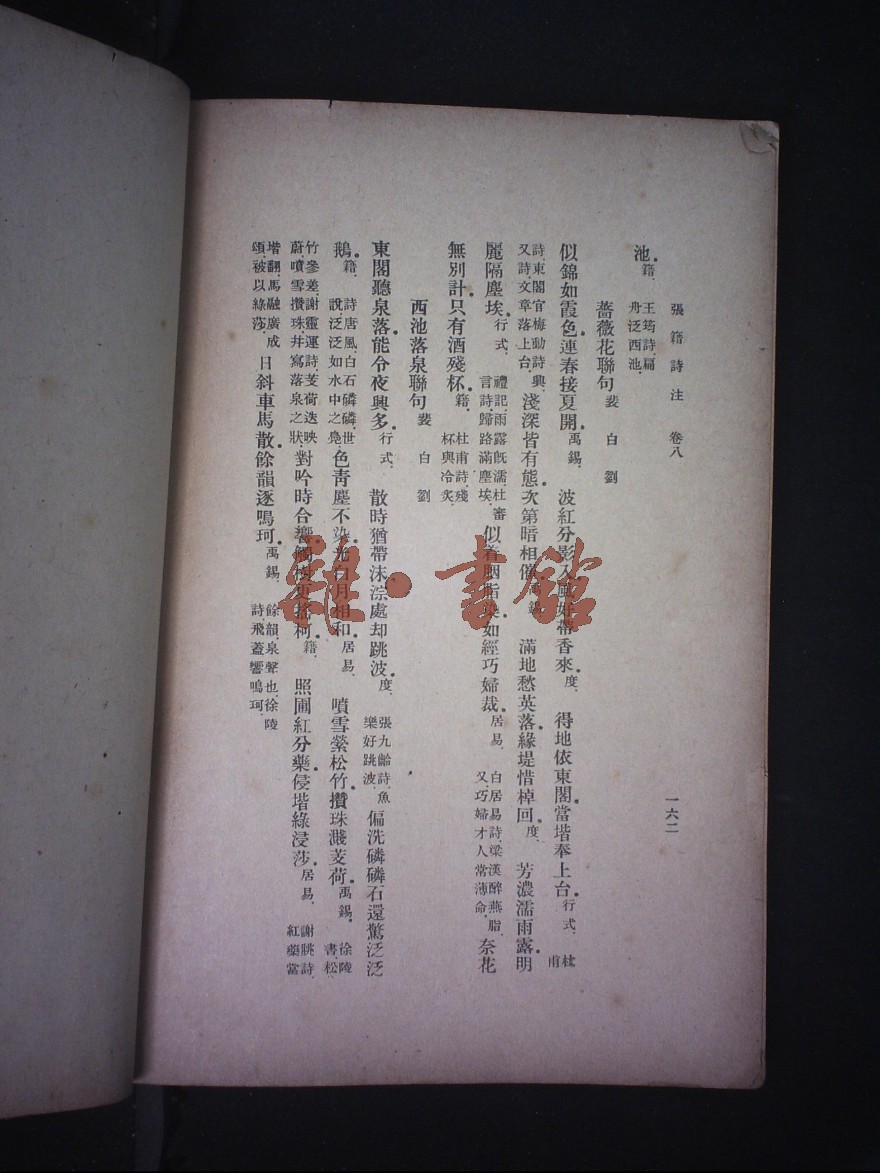 張籍詩注 卷八 一六二
池。籍、王筠詩、扁舟泛西池、
薔薇花聯句 裴 白 劉
似錦如霞色。連春接夏開。禹錫、波紅分影入。風好帶香來。度、得地依東閣。當堦奉上台。行式、杜甫
詩、東閣官梅動詩興、又詩、文章落上台、淺深皆有態。次第暗相催。禹錫、滿地愁英落。緣堤惜棹回。度、芳濃濡雨露。明
麗隔塵埃。行式、禮記、雨露旣濡、杜審言詩、歸路滿塵埃、似着胭脂染。如經巧婦裁。居易、白居易詩、梁漢醉燕脂、又、巧婦才人常薄命、奈花
無別計。只有酒殘杯。籍、杜甫詩、殘杯與冷炙、
西池落泉聯句 裴 白 劉
東閣聽泉落。能令夜興多。行式、散時猶帶沫。淙處却跳波。度、張九齡詩、魚樂好跳波、偏洗磷磷石。還驚泛泛
鵝。籍、詩唐風、白石磷磷、世說泛泛如水中之鳧、色靑塵不染。光白月相和。居易、噴雪縈松竹。攢珠濺芰荷。禹錫、徐陵書、松
竹參差、謝靈運詩、芰荷迭映蔚、噴雪攢珠、井寫落泉之狀、對吟時合響。觸樹更搖柯。籍、照圃紅分藥。侵堦綠浸莎。居易、謝朓詩、紅藥當
堦翻、馬融廣成頌、被以綠莎、日斜車馬散。餘韻逐鳴珂。禹錫、餘韻泉聲也、徐陵詩、飛蓋響鳴珂、
雜·書館